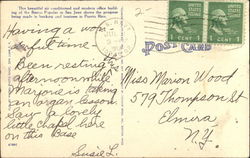 This beautiful air conditioned and modern office building
of the Banco Popular in San Juan shows the progress
being made in banking and business in Puerto Rico.
Having a won-
derful time.
Been resting
afternoons while
Marjorie is taking
an organ lesson
Say a lovely
little chapel here
on this Base
Susie L.
POST CARD
1 CENT 1
1 CENT 1
Miss Marion Wood
579 Thompson St
Elmira
N.Y.